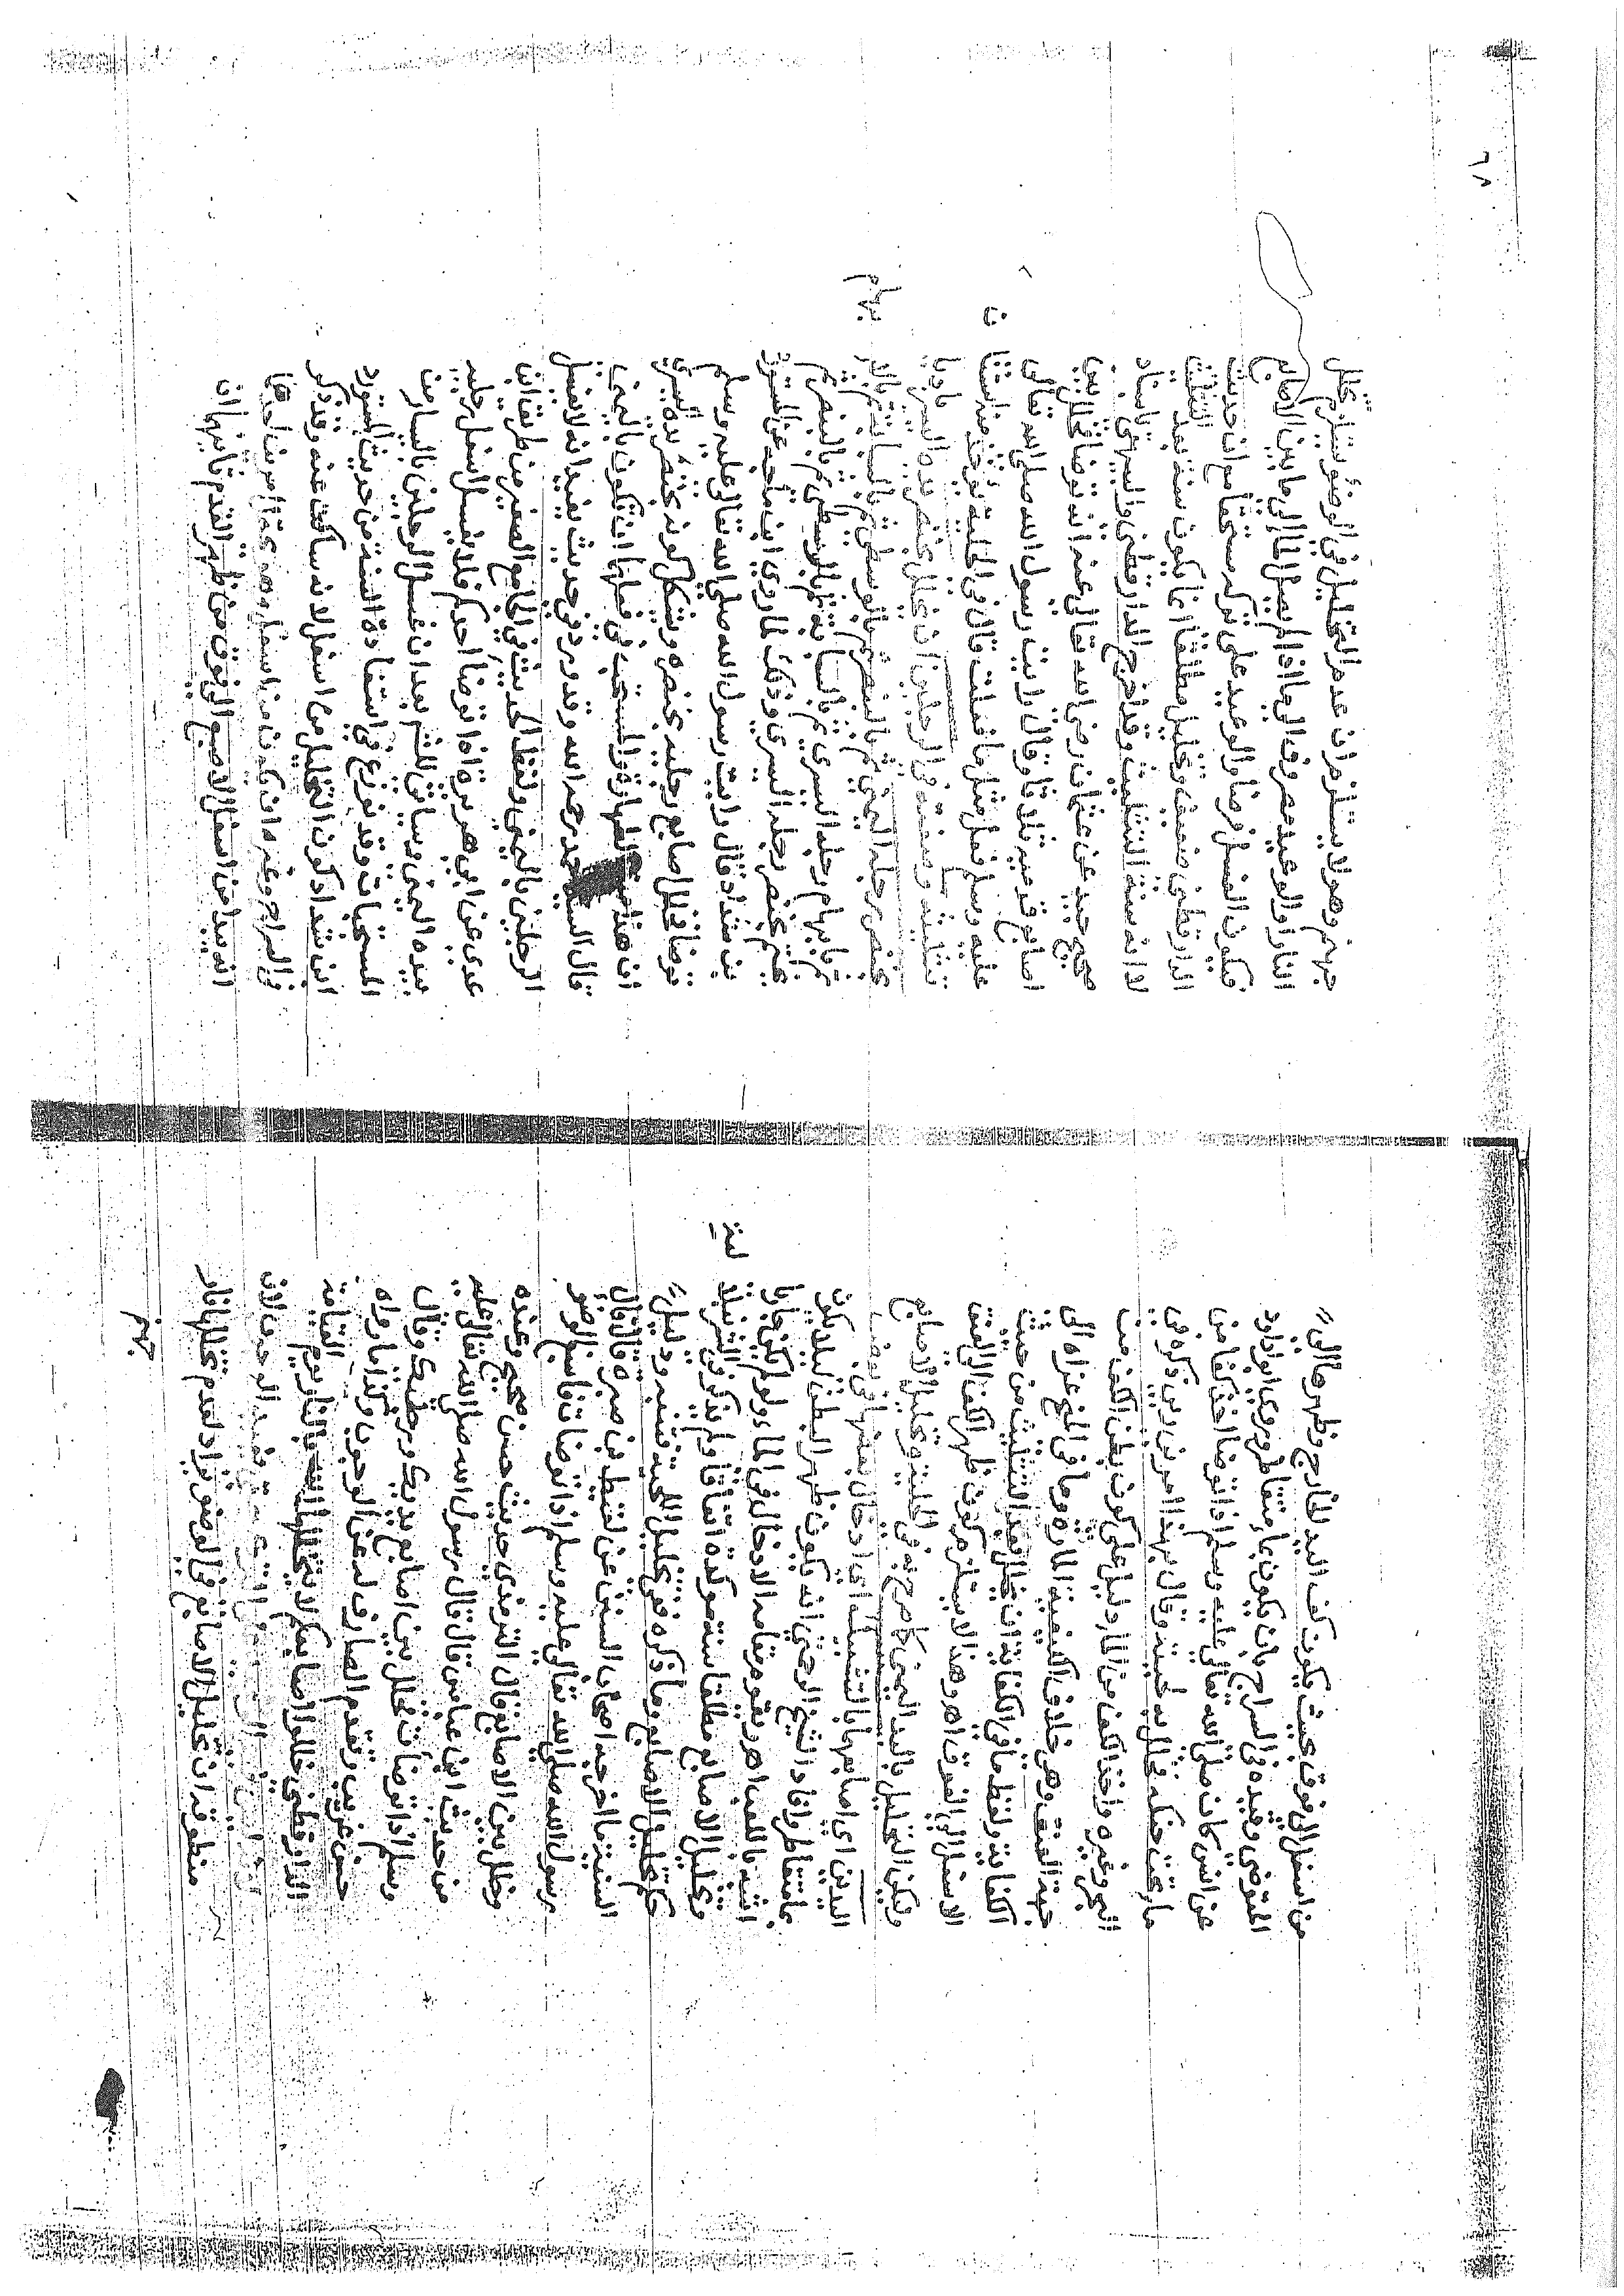 من اسفل الى فوق بحيث يكون كف اليد الخارج وظهرها الى
المتوضى وقيده في السراج بان يكون بماء متقاطر وروى ابو داود
عن انس كان صلى الله تعالى عليه وسلم اذا توضا اخذ كفا من
ماء تحت حنكه فخلل به لحيته وقال بهذا امرني ربي ذكره في
البحر وغيره واخذ الكف من الماء دليل على كون بطن الكف من
جهة العنق وهي خلاف الكيفية المارة وما في المنح عزاه الى
الكفاية ولفظ ما في الكفاية ان يخلل بعد التثليث من حيث
الاسفل الى الفوق اهـ وهذا لا يستلزم كون ظهر الكف الى العنق
وليكن التخليل باليد اليمنى كما صرح به في الحلية وتخليل الاصابع
اليدين اي اصابعهما بالتشبيك اي ادخال بعضها في بعض
بماء متقاطر وافاد الشيخ الرحمتي انه يكون ظهر البطن ليلا يكون
اشبه باللعب اهر ويقوم مقامه الادخال في الماء ولو لم يكن جاريا
وتخليل الاصابع مطلقا سنة موكدة اتفاقا ولم يذكروا
حكم تخليل الاصابع وما ذكره في تخليل اللحية
السنية ما اخرجه اصحاب السنن عن لقيط بن صبرة قال قال
رسول الله صلى الله تعالى عليه وسلم اذا توضات فاسبغ الوضو
وخلل بين الاصابع قال الترمذي حديث حسن صحيح وعنده
من حديث ابن عباس قال قال رسول الله صلى الله تعالى عليه
وسلم اذا توضات فخلل بين اصابع يديك ورجليك وقال
حسن غريب وتقدم الصارف له عن الوجوب وكذا ما رواه
الدارقطني خللوا اصابعكم لا يتخللها الله بالنار يوم القيامة
منطوقه ان تخليل الاصابع في الوضو يراد لعدم تخللها بالنار
جهنم
جهنم وهو لا يستلزم ان عدم التخليل في الوضوء يستلزم تخلل
النار او الوعيد مصروف الى ما اذا لم يصل الماء الى ما بين الاصابع
فيكون الغسل فرضا والوعيد على تركه مستحقا مع ان حديث
الدارقطني ضعيف وتخليل مطلقا انما يكون سنة بعد التثليث
لانه سنة التثليث وقد اخرج الدارقطني والبيهقي باسناد
صحيح جيد عن عثمان رضي الله تعالى عنه انه توضا فخلل بين
اصابع قدميه ثلاثا وقال رايت رسول الله صلى الله تعالى
عليه وسلم فعل مثل ما فعلت قال في الحلية يوخذ منه استنان
تثليثه وصفته في الرجلين ان يخلل بخنصر يده اليسرى بادئا
بخنصر رجله اليمنى ثم بالبنصر ثم بالوسطى ثم بالسبابة ثم بالابهام
ثم بابهام رجله اليسرى ثم بالسبابة ثم بالوسطى ثم بالبنصر ثم
يختم بخنصر رجله اليسرى وذلك لما روى ابن ماجه عن المستورد
بن شداد قال رايت رسول الله صلى الله تعالى عليه وسلم
توضا فخلل اصابع رجليه بخنصره ويشكل كونه بخنصر يده اليسرى
ان هذا من الطهارة والمستحب في فعلها ان تكون باليمنى
قال الشيخ رحمه الله وقد ورد في حديث يفيد انه لا يغسل
الرجلين باليمنى ولفظ الحديث في الجامع الصغير من طريق ابن
عدي عن ابي هريرة اذا توضا احدكم فلا يغسل اسفل رجليه
بيده اليمنى وسياتي للشم بعد ان غسل الرجلين باليسار من
المستحبات وقد نوزع في استفادة السنة من حديث المستورد
ابن شداد كون التخليل من اسفل لانه ساكت عنه وقد ذكر
في السراج وغيره ان يكون من اسفل وهو يحتمل امرين احدهما
انه يبدا من اسفل الاصبع الى فوق من ظهر القدم ثانيهما ان